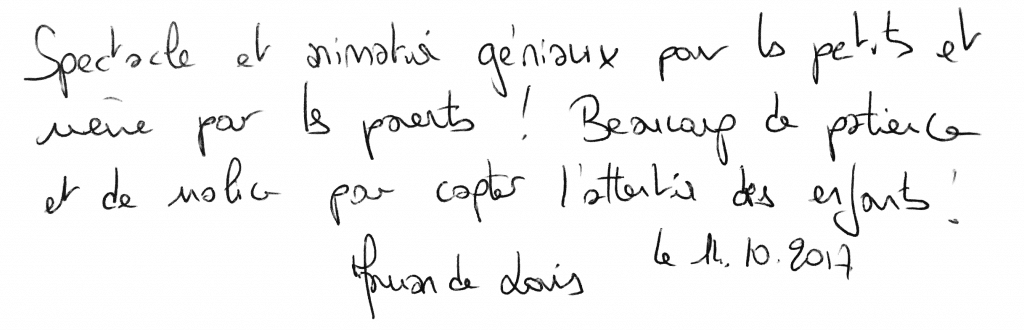 Spectacle et animation géniaux pour les petits et
même pour les parents ! Beaucoup de patience
et de malice pour capter l'attention des enfants !
Maman de Loris le 14.10.2017